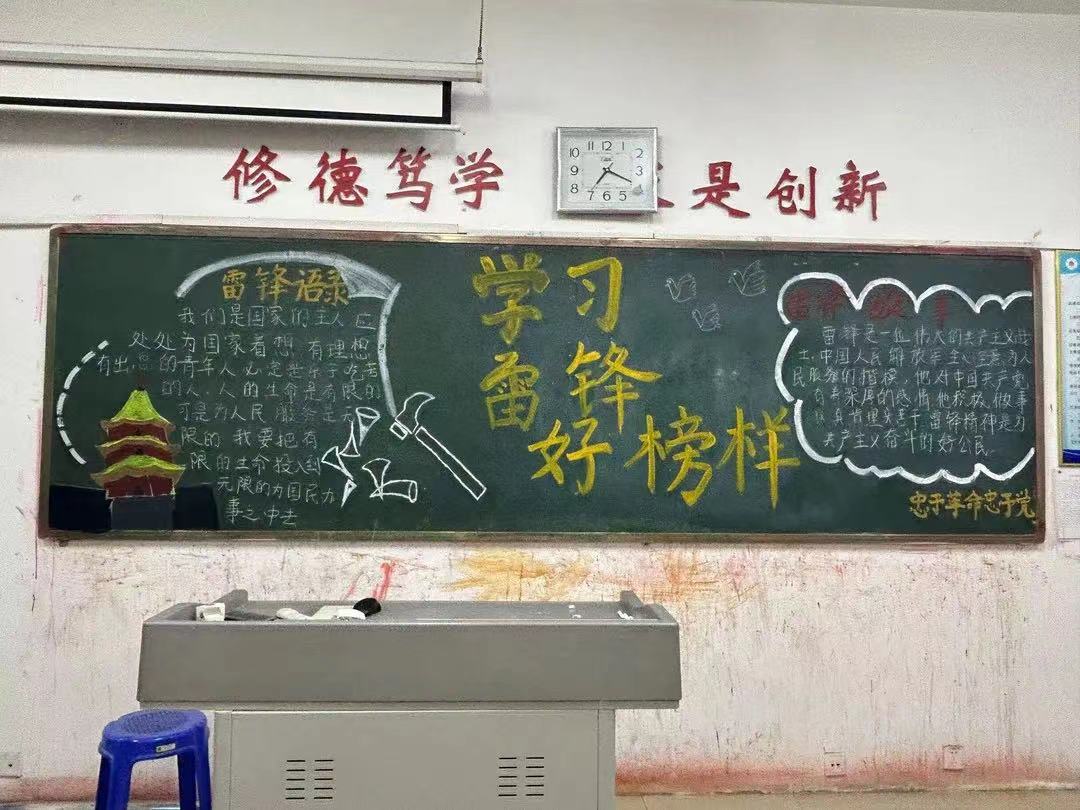 修德笃学
是创新
10 11 12 1 2 3
9 8 7 6 5
雷锋语录
我们是国家的主人应
处处为国家着想，有理想
有出息的青年人必定是乐于吃苦
的人.人的生命是有限的
可是为人民服务是无
限的我要把有
限的生命投入到
无限的为国民办
事之中去
学习
雷锋
好榜样
雷锋故事
雷锋是一位伟大的共产主义战
士，中国人民解放军
民服务的楷模，他对中国共产党
有着深厚的感情他积极做事
认真肯埋头苦干雷锋精神是为
共产主义奋斗的好公民.
忠于革命忠于党